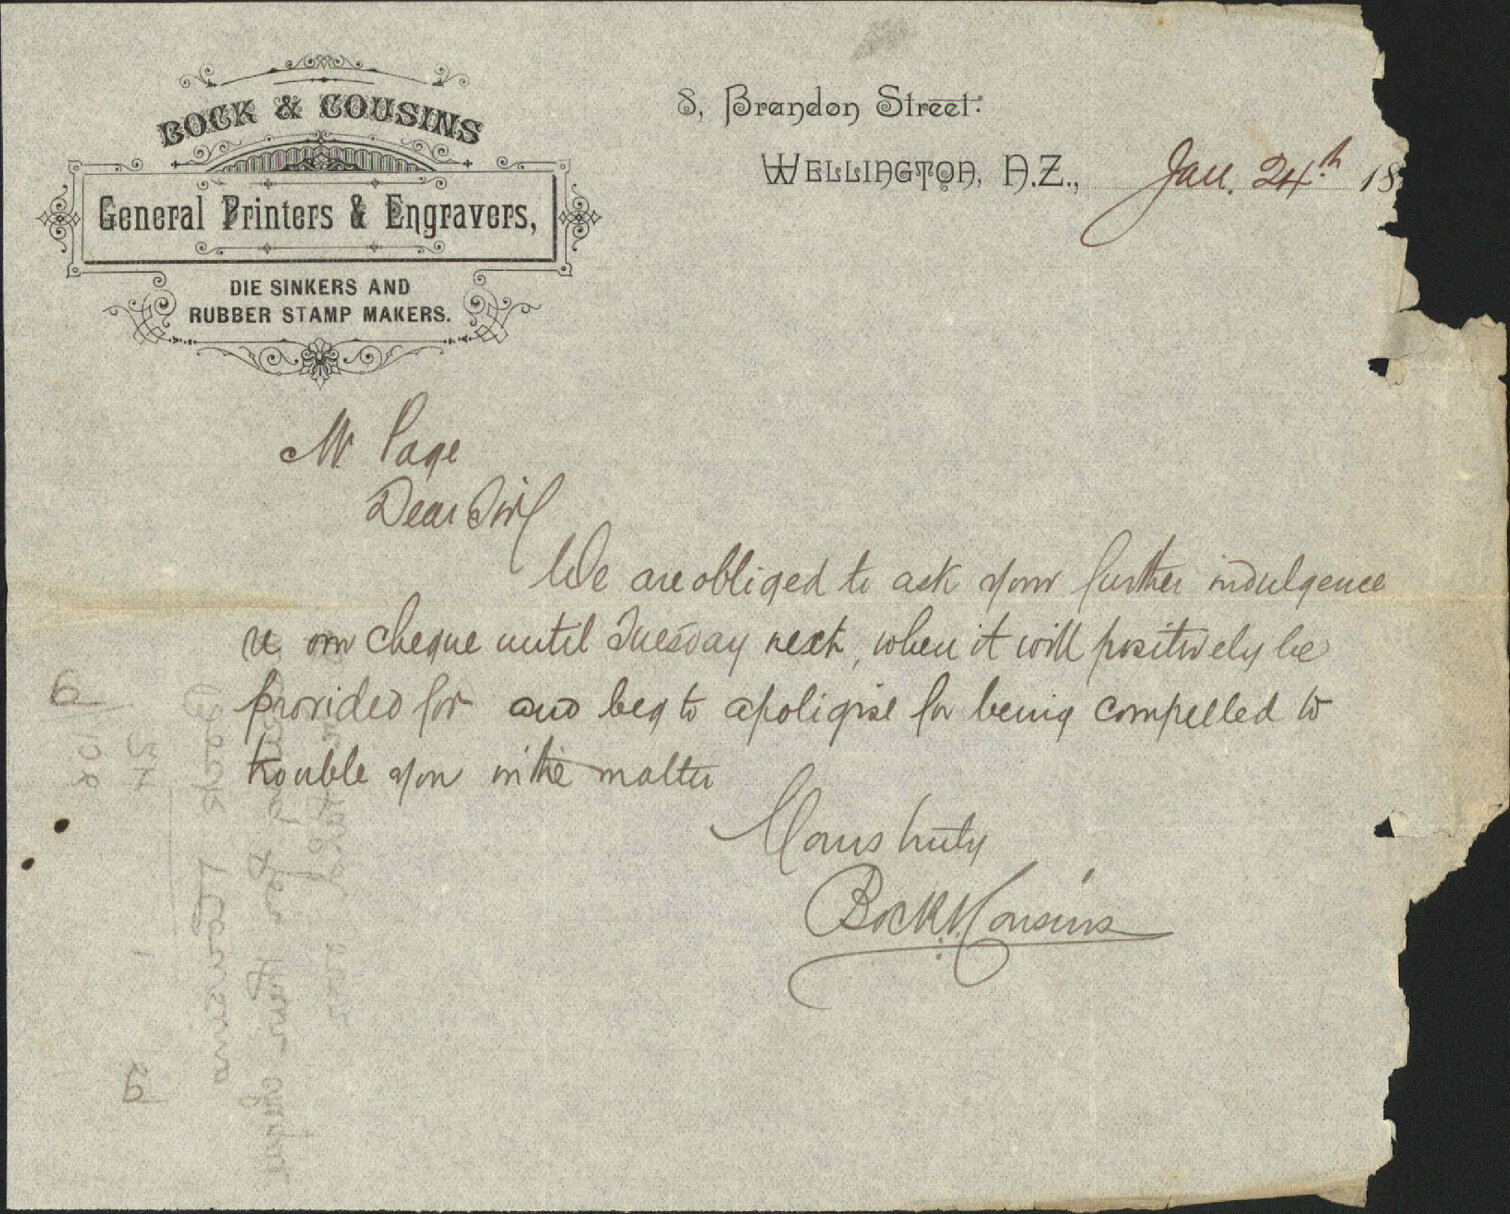 BOCK & COUSINS
General Printers & Engravers,
DIE SINKERS AND
RUBBER STAMP MAKERS.
8, Brandon Street.
WELLINGTON, N.Z., Jan. 24th 18
Mr Page
Dear Sir
We are obliged to ask your further indulgence
re our cheque until Tuesday next, when it will positively be
provided for and beg to apoligise for being compelled to
trouble you in the matter
Yours truly
Bock & Cousins